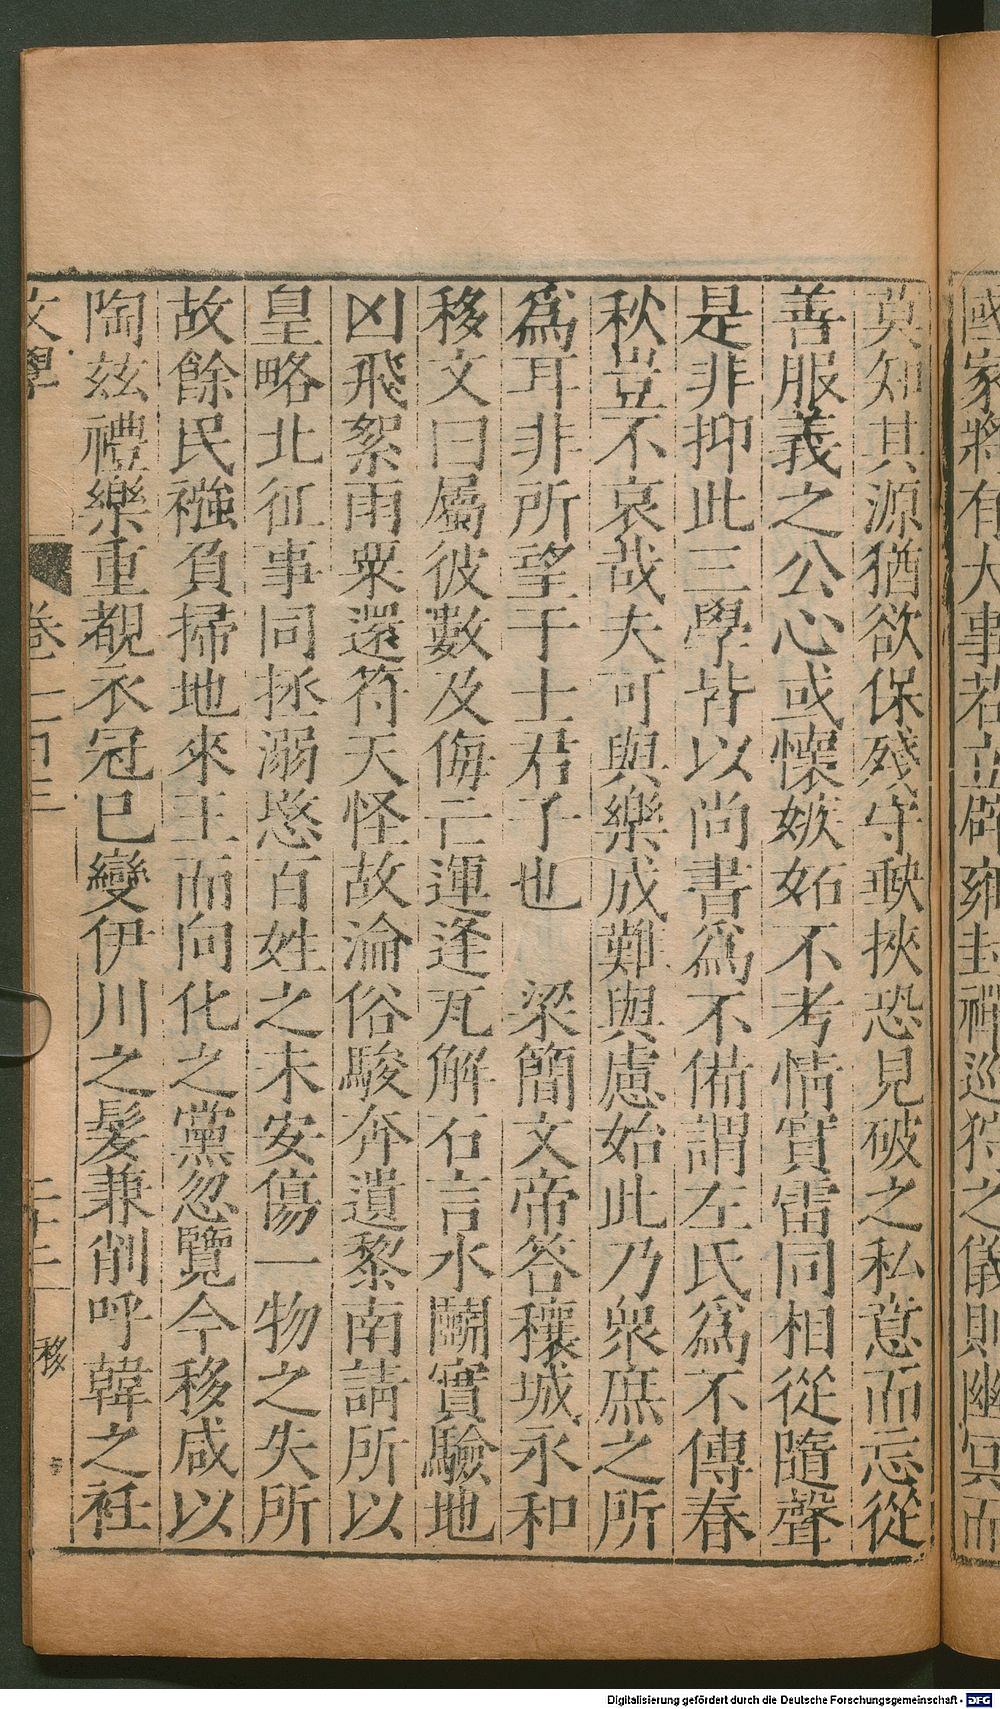 國家將有大事若立辟雍封禪巡狩之儀則幽冥而
莫知其源猶欲保殘守缺挾恐見破之私意而忘從
善服義之公心或懷嫉妬不考情實雷同相從隨聲
是非抑此三學皆以尚書爲不備謂左氏爲不傳春
秋豈不哀哉夫可與樂成難與慮始此乃衆庶之所
爲耳非所望于士君子也　梁簡文帝答穰城永和
移文曰屬彼數及侮亡運逢瓦解石言水鬭實驗地
凶飛絮雨粟還符天怪故淪俗駿奔遺黎南請所以
皇略北征事同拯溺愍百姓之未安傷一物之失所
故餘民襁負掃地來王而向化之黨忽覽今移咸以
陶兹禮樂重覩衣冠已變伊川之髮兼削呼韓之衽
文學　卷二百三　二十三　移
Digitalisierung gefördert durch die Deutsche Forschungsgemeinschaft - DFG